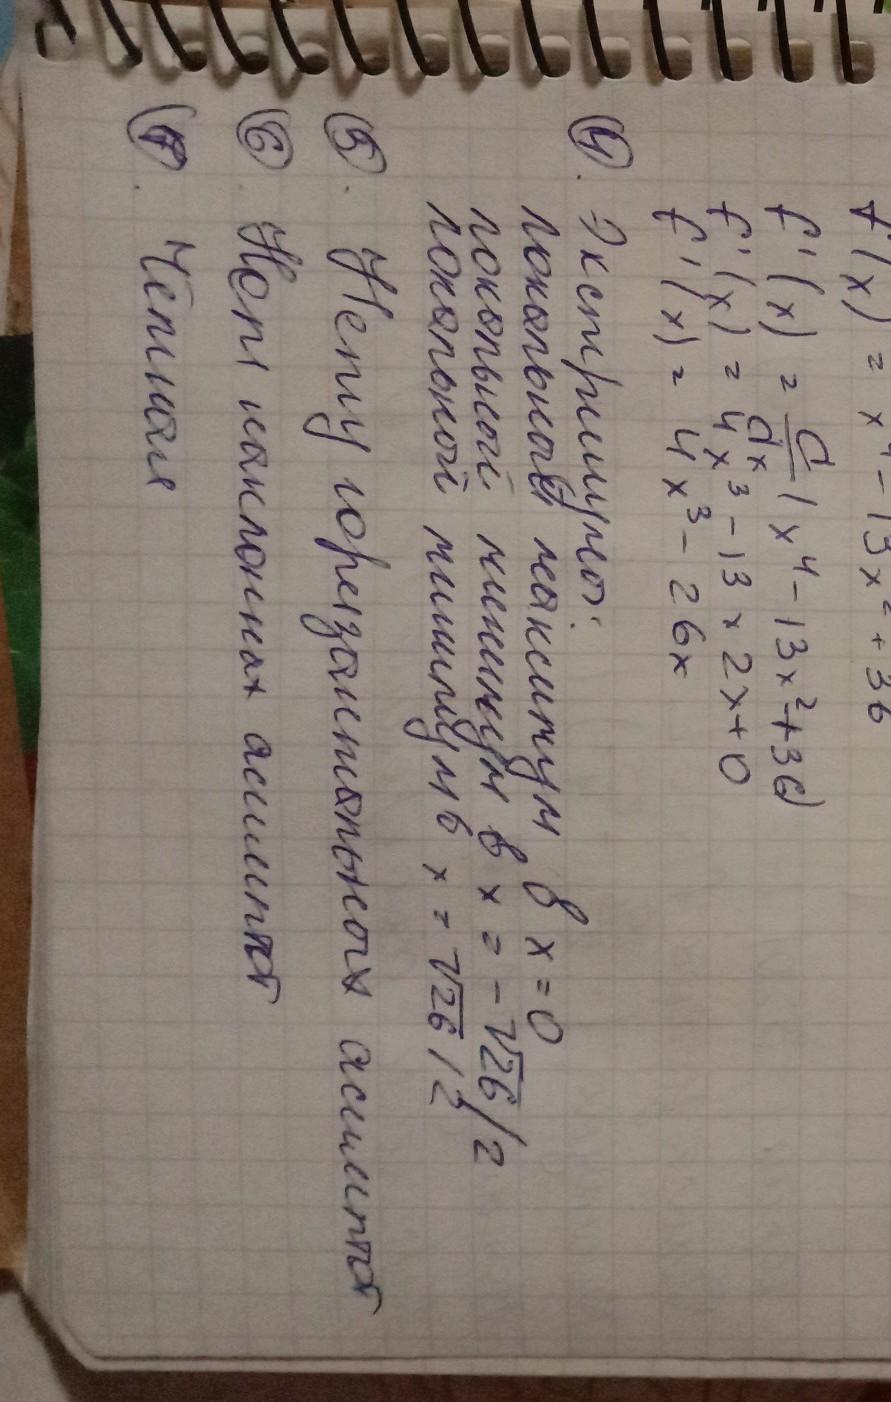 f'(x) = x⁴ - 13x² + 36
f'(x) = d/dx (x⁴ - 13x² + 36)
f'(x) = 4x³ - 13 × 2x + 0
f'(x) = 4x³ - 26x
④. Экстримумо:
локольной максимум в x = 0
локольной минимум в x = -√26/2
локольной минимум в x = √26/2
⑤. Нету горизонтольных асимптот
⑥. Нет наклонных асимптот
⑦. Чётная